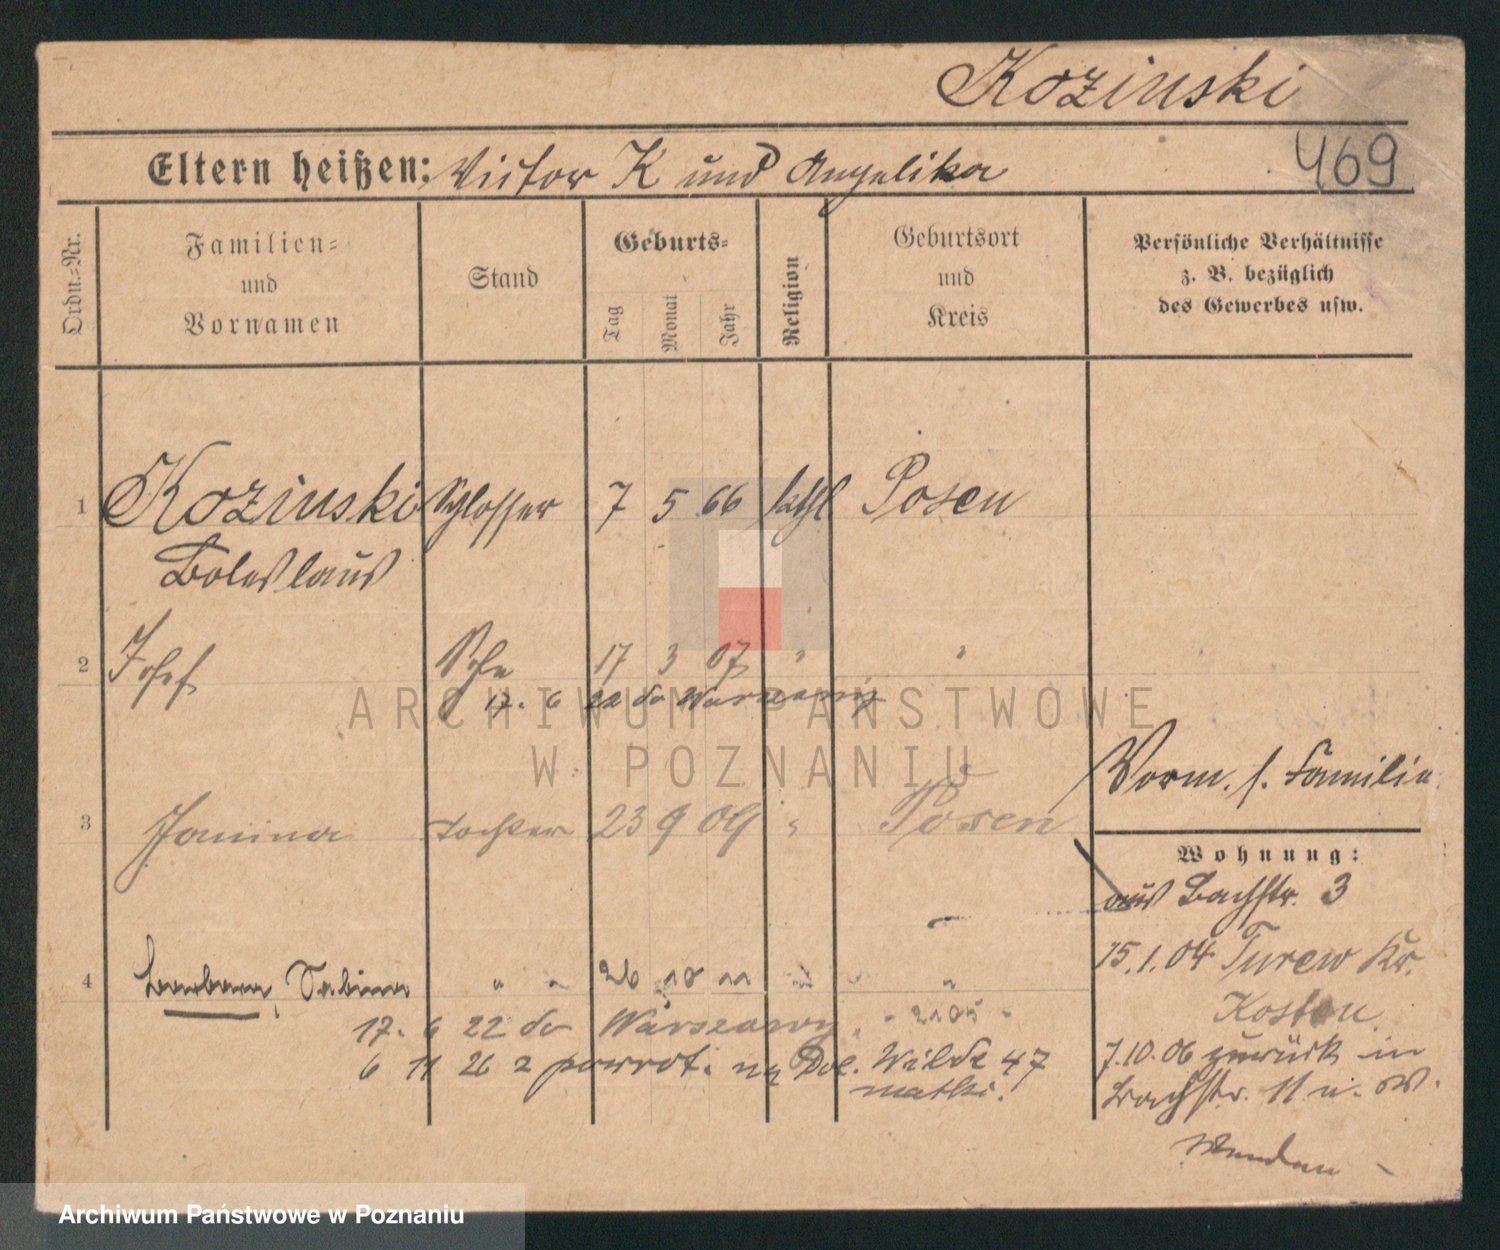 Kozinski
Eltern heißen: Victor K und Angelika
469
Ordn.-Nr.
Familien-
und
Vornamen
Stand
Geburts-
Tag
Monat
Jahr
Religion
Geburtsort
und
Kreis
Persönliche Verhältnisse
z. B. bezüglich
des Gewerbes usw.
1 Kozinski Schlosser 7 5 66 kath Posen
Boleslaus
2 Josef Sohn 17 3 07 " "
17. 6 22 do Warszawy
ARCHIWUM PAŃSTWOWE
W POZNANIU
Vorm. s. Familie
3 Janina Tochter 23 9 09 " Posen
Wohnung:
aus Bachstr. 3
15.1.04 Turew Kr.
Kosten
4 Barbara, Sabina " " 26 10 11 " "
17. 6 22 do Warszawy
6 11 26 z powrot. na Dol. Wilde 47
matki.
7.10.06 zurück in
Bachstr. 11 u. w.
Wenden
Archiwum Państwowe w Poznaniu